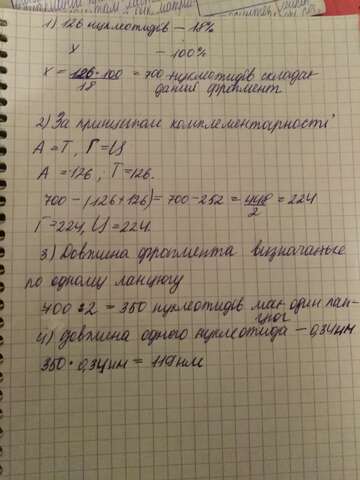 1) 126 нуклеотидів – 18%
х – 100%
х = 126·100 / 18 = 700 нуклеотидів складає
даний фрагмент
2) За принципом комплементарності
А = Т, Г = Ц
А = 126, Т = 126.
700 – (126+126) = 700 – 252 = 448 / 2 = 224
Г = 224, Ц = 224.
3) Довжина фрагмента визначаеться
по одному ланцюгу
700 : 2 = 350 нуклеотидів має один лан-
цюг
4) Довжина одного нуклеотида – 0,34 нм
350 · 0,34 нм = 119 нм